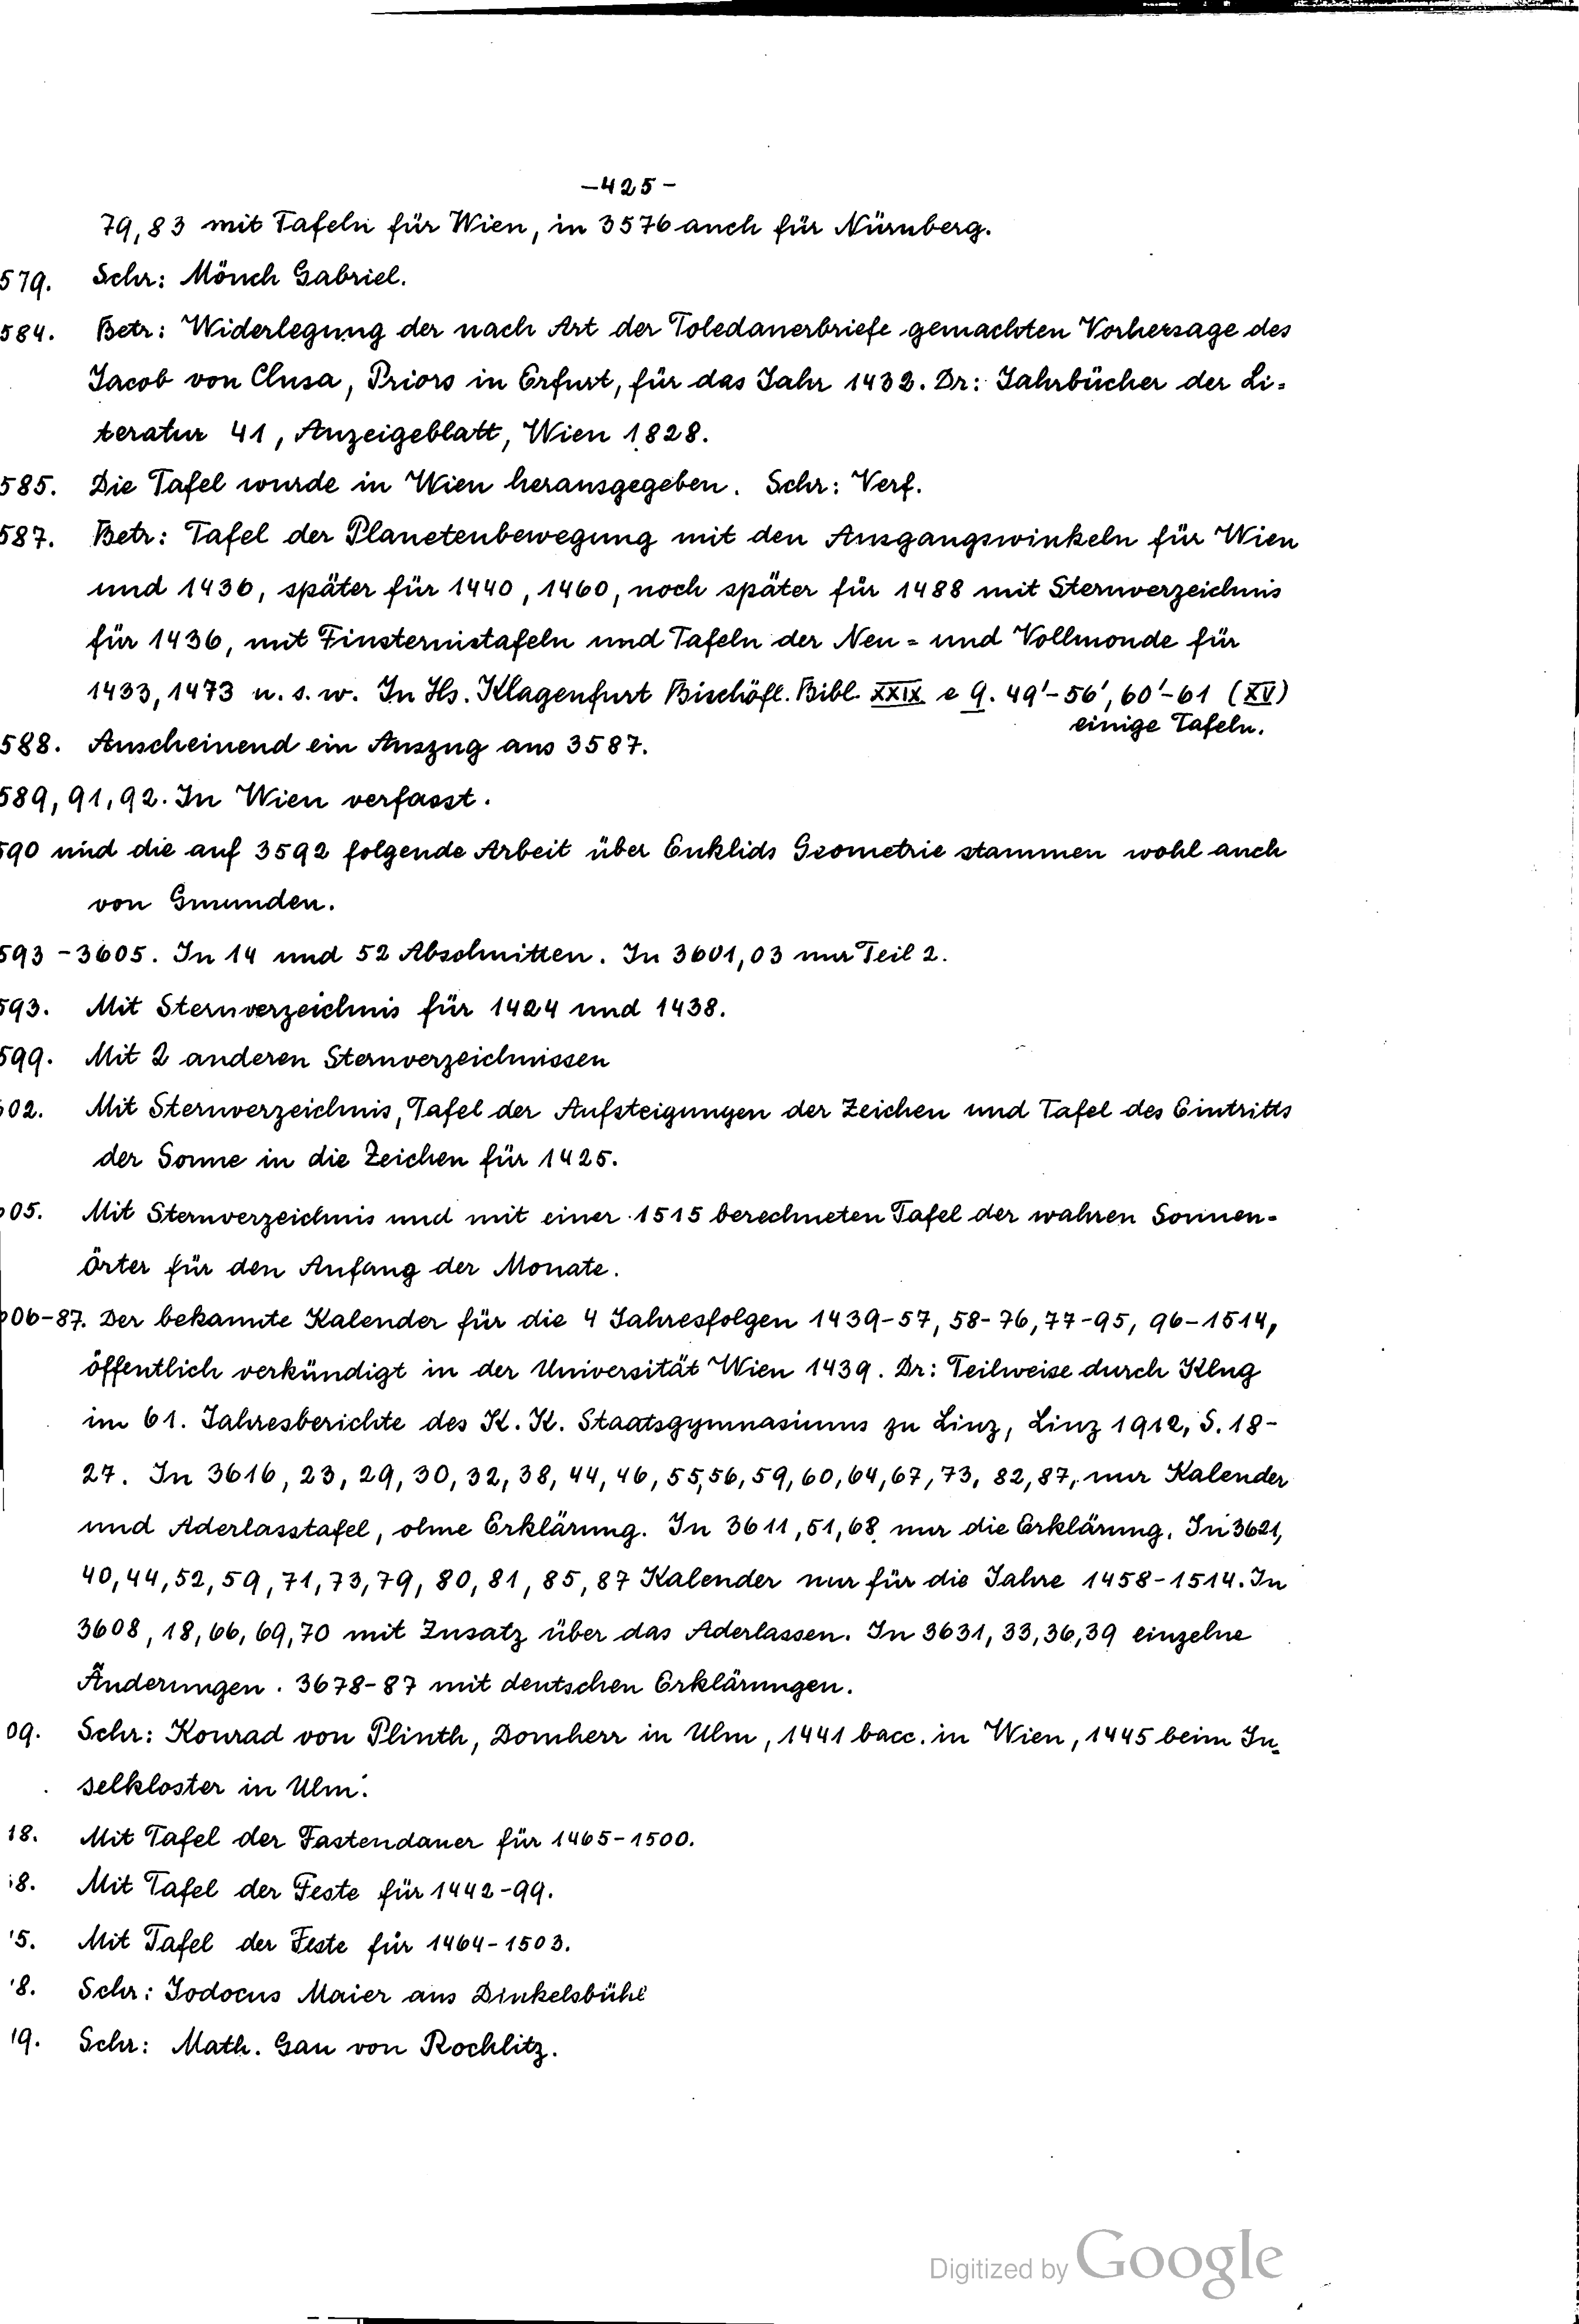 -425-
79,83 mit Tafeln für Wien, in 3576 auch für Nürnberg.
579. Schr: Mönch Gabriel.
584. Betr: Widerlegung der nach Art der Toledanerbriefe gemachten Vorhersage des
Jacob von Clusa, Priors in Erfurt, für das Jahr 1432. Dr: Jahrbücher der Li=
teratur 41, Anzeigeblatt, Wien 1828.
585. Die Tafel wurde in Wien herausgegeben. Schr: Verf.
587. Betr: Tafel der Planetenbewegung mit den Ausgangswinkeln für Wien
und 1436, später für 1440, 1460, noch später für 1488 mit Sternverzeichnis
für 1436, mit Finsternistafeln und Tafeln der Neu= und Vollmonde für
1433, 1473 u. s. w. In Hs. Klagenfurt Bischöfl. Bibl. XXIX e 9. 49'-56', 60'-61 (XV)
einige Tafeln.
588. Anscheinend ein Auszug aus 3587.
589, 91, 92. In Wien verfasst.
590 und die auf 3592 folgende Arbeit über Euklids Geometrie stammen wohl auch
von Gmunden.
593-3605. In 14 und 52 Abschnitten. In 3601,03 nur Teil 2.
593. Mit Sternverzeichnis für 1424 und 1438.
599. Mit 2 anderen Sternverzeichnissen
02. Mit Sternverzeichnis, Tafel der Aufsteigungen der Zeichen und Tafel des Eintritts
der Sonne in die Zeichen für 1425.
05. Mit Sternverzeichnis und mit einer 1515 berechneten Tafel der wahren Sonnen-
örter für den Anfang der Monate.
06-87. Der bekannte Kalender für die 4 Jahresfolgen 1439-57, 58-76, 77-95, 96-1514,
öffentlich verkündigt in der Universität Wien 1439. Dr: Teilweise durch Klug
im 61. Jahresberichte des K. K. Staatsgymnasiums zu Linz, Linz 1912, S. 18-
27. In 3616, 23, 29, 30, 32, 38, 44, 46, 55, 56, 59, 60, 64, 67, 73, 82, 87, nur Kalender
und Aderlasstafel, ohne Erklärung. In 3611, 51, 68 nur die Erklärung. In 3621,
40, 44, 52, 59, 71, 73, 79, 80, 81, 85, 87 Kalender nur für die Jahre 1458-1514. In
3608, 18, 66, 69, 70 mit Zusatz über das Aderlassen. In 3631, 33, 36, 39 einzelne
Änderungen. 3678-87 mit deutschen Erklärungen.
09. Schr: Konrad von Plinth, Domherr in Ulm, 1441 bacc. in Wien, 1445 beim In=
selkloster in Ulm.
18. Mit Tafel der Fastendauer für 1465-1500.
8. Mit Tafel der Feste für 1442-99.
5. Mit Tafel der Feste für 1464-1503.
8. Schr: Jodocus Maier aus Dinkelsbühl
19. Schr: Math. Gau von Rochlitz.
Digitized by Google